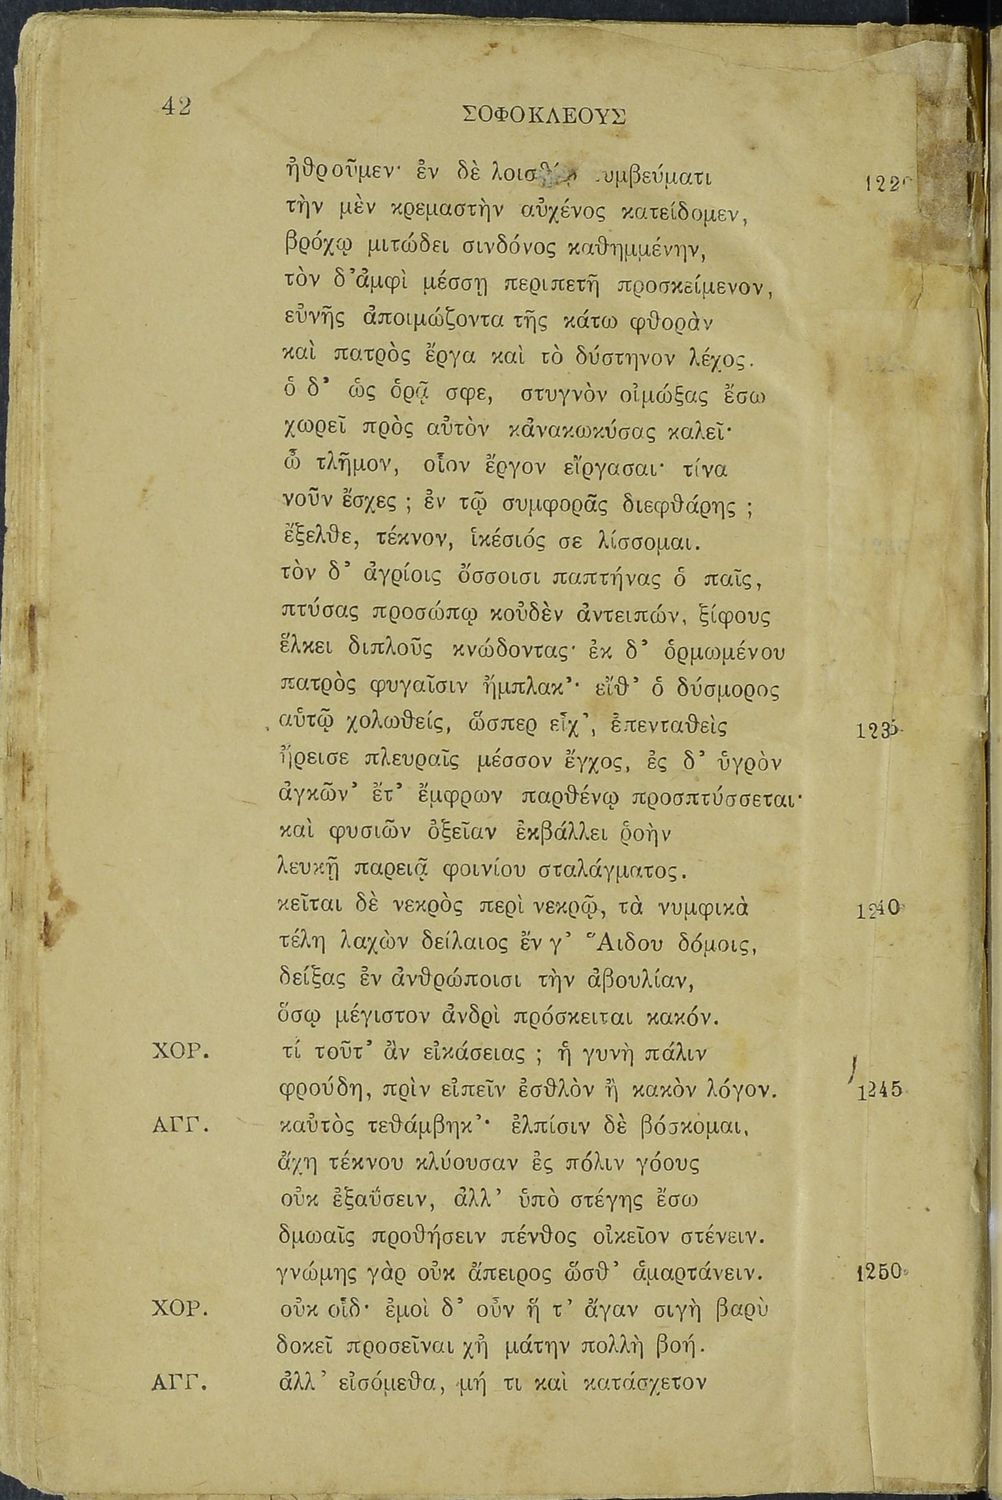 42
ΣΟΦΟΚΛΕΟΥΣ
ἠθροῦμεν· ἐν δὲ
τὴν μὲν κρεμαστὴν αὐχένος κατείδομεν,
βρόχῳ μιτώδει σινδόνος καθημμένην,
τὸν δ᾽ἀμφὶ μέσσῃ περιπετῆ προσκείμενον,
εὐνῆς ἀποιμώζοντα τῆς κάτω φθορὰν
καὶ πατρὸς ἔργα καὶ τὸ δύστηνον λέχος.
ὁ δ᾽ ὡς ὁρᾷ σφε, στυγνὸν οἰμώξας ἔσω
χωρεῖ πρὸς αὐτὸν κἀνακωκύσας καλεῖ·
ὦ τλῆμον, οἷον ἔργον εἴργασαι· τίνα
νοῦν ἔσχες ; ἐν τῷ συμφορᾶς διεφθάρης ;
ἔξελθε, τέκνον, ἱκέσιός σε λίσσομαι.
τὸν δ᾽ ἀγρίοις ὄσσοισι παπτήνας ὁ παῖς,
πτύσας προσώπῳ κοὐδὲν ἀντειπών, ξίφους
ἕλκει διπλοῦς κνώδοντας· ἐκ δ᾽ ὁρμωμένου
πατρὸς φυγαῖσιν ἤμπλακ᾽· εἴθ᾽ ὁ δύσμορος
αὑτῷ χολωθείς, ὥσπερ εἶχ᾽, ἐπενταθεὶς 1235
ἤρεισε πλευραῖς μέσσον ἔγχος, ἐς δ᾽ ὑγρὸν
ἀγκῶν᾽ ἔτ᾽ ἔμφρων παρθένῳ προσπτύσσεται·
καὶ φυσιῶν ὀξεῖαν ἐκβάλλει ῥοὴν
λευκῇ παρειᾷ φοινίου σταλάγματος.
κεῖται δὲ νεκρὸς περὶ νεκρῷ, τὰ νυμφικὰ 1240
τέλη λαχὼν δείλαιος ἔν γ᾽ Ἅιδου δόμοις,
δείξας ἐν ἀνθρώποισι τὴν ἀβουλίαν,
ὅσῳ μέγιστον ἀνδρὶ πρόσκειται κακόν.
ΧΟΡ. τί τοῦτ᾽ ἂν εἰκάσειας ; ἡ γυνὴ πάλιν
φρούδη, πρὶν εἰπεῖν ἐσθλὸν ἢ κακὸν λόγον. 1245
ΑΓΓ. καὐτὸς τεθάμβηκ᾽· ἐλπίσιν δὲ βόσκομαι,
ἄχη τέκνου κλύουσαν ἐς πόλιν γόους
οὐκ ἐξαΰσειν, ἀλλ᾽ ὑπὸ στέγης ἔσω
δμωαῖς προθήσειν πένθος οἰκεῖον στένειν.
γνώμης γὰρ οὐκ ἄπειρος ὥσθ᾽ ἁμαρτάνειν. 1250
ΧΟΡ. οὐκ οἶδ· ἐμοὶ δ᾽ οὖν ἥ τ᾽ ἄγαν σιγὴ βαρὺ
δοκεῖ προσεῖναι χἠ μάτην πολλὴ βοή.
ΑΓΓ. ἀλλ᾽ εἰσόμεθα, μή τι καὶ κατάσχετον